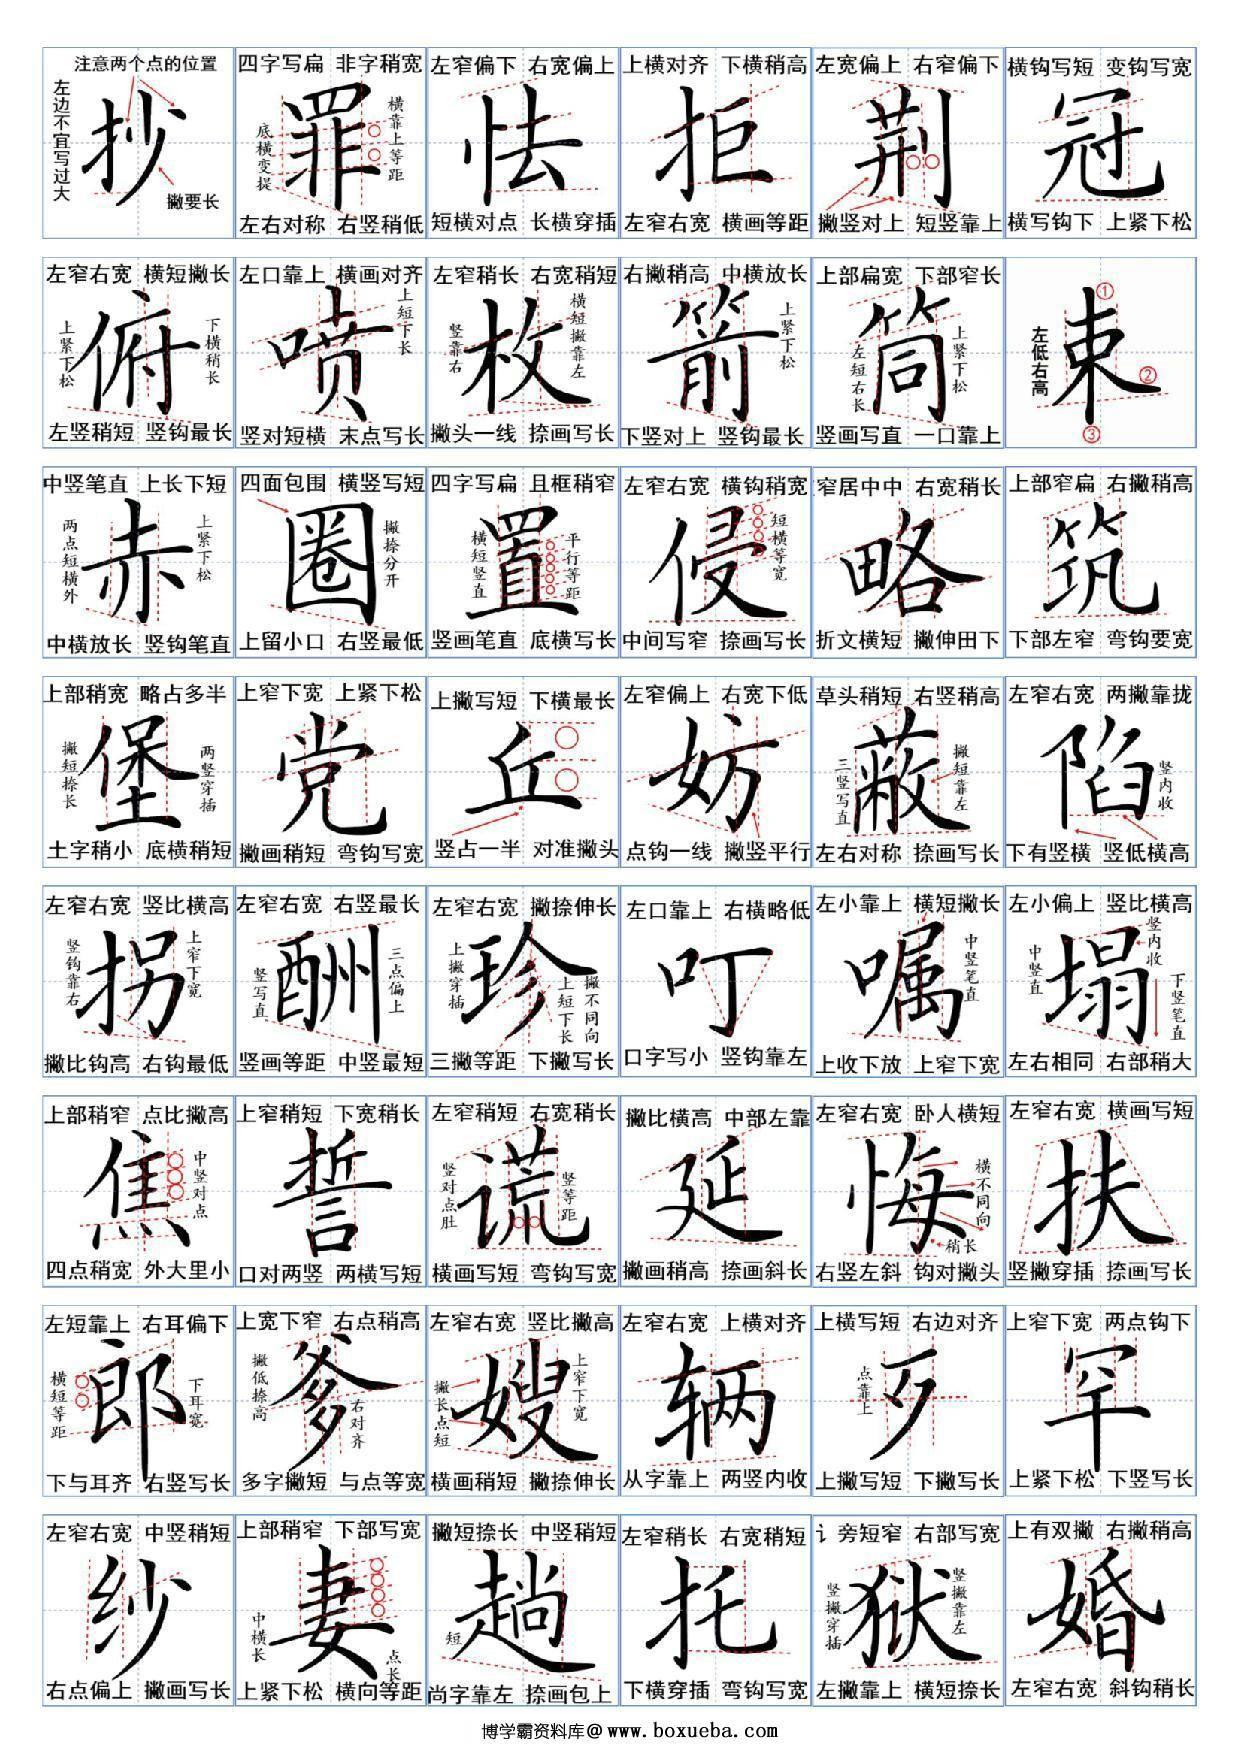 注意两个点的位置
左边不宜写过大
抄
撇要长
四字写扁 非字稍宽
横靠上等距
底横变提
罪
左右对称 右竖稍低
左窄偏下 右宽偏上
怯
短横对点 长横穿插
上横对齐 下横稍高
拒
左窄右宽 横画等距
左宽偏上 右窄偏下
荆
撇竖对上 短竖靠上
横钩写短 变钩写宽
冠
横写钩下 上紧下松
左窄右宽 横短撇长
上紧下松
俯
下横稍长
左竖稍短 竖钩最长
左口靠上 横画对齐
喷
上短下长
竖对短横 末点写长
左窄稍长 右宽稍短
竖靠右
枚
横短撇靠左
撇头一线 捺画写长
右撇稍高 中横放长
箭
上紧下松
下竖对上 竖钩最长
上部扁宽 下部窄长
左短右长
筒
上紧下松
竖画写直 一口靠上
左低右高
束
①
②
③
中竖笔直 上长下短
两点短横外
赤
上紧下松
中横放长 竖钩笔直
四面包围 横竖写短
圈
撇捺分开
上留小口 右竖最低
四字写扁 且框稍窄
横短竖直
置
平行等距
竖画笔直 底横写长
左窄右宽 横钩稍宽
侵
短横等宽
中间写窄 捺画写长
窄居中中 右宽稍长
略
折文横短 撇伸田下
上部窄扁 右撇稍高
筑
下部左窄 弯钩要宽
上部稍宽 略占多半
撇短捺长
堡
两竖穿插
土字稍小 底横稍短
上窄下宽 上紧下松
党
撇画稍短 弯钩写宽
上撇写短 下横最长
丘
竖占一半 对准撇头
左窄偏上 右宽下低
妨
点钩一线 撇竖平行
草头稍短 右竖稍高
三竖写直
蔽
撇短靠左
左右对称 捺画写长
左窄右宽 两撇靠拢
陷
竖内收
下有竖横 竖低横高
左窄右宽 竖比横高
竖钩靠右
拐
上窄下宽
撇比钩高 右钩最低
左窄右宽 右竖最长
竖写直
酬
三点偏上
竖画等距 中竖最短
左窄右宽 撇捺伸长
上撇穿插
珍
上短下长
撇不同向
三撇等距 下撇写长
左口靠上 右横略低
叮
口字写小 竖钩靠左
左小靠上 横短撇长
嘱
中竖笔直
上收下放 上窄下宽
左小偏上 竖比横高
中竖直
塌
竖内收
下竖笔直
左右相同 右部稍大
上部稍窄 点比撇高
焦
中竖对点
四点稍宽 外大里小
上窄稍短 下宽稍长
誓
口对两竖 两横写短
左窄稍短 右宽稍长
竖对点肚
谎
竖等距
横画写短 弯钩写宽
撇比横高 中部左靠
延
撇画稍高 捺画斜长
左窄右宽 卧人横短
悔
横不同向
稍长
右竖左斜 钩对撇头
左窄右宽 横画写短
扶
竖撇穿插 捺画写长
左短靠上 右耳偏下
横短等距
郎
下耳宽
下与耳齐 右竖写长
上宽下窄 右点稍高
撇低捺高
爹
右对齐
多字撇短 与点等宽
左窄右宽 竖比撇高
撇长点短
嫂
上窄下宽
横画稍短 撇捺伸长
左窄右宽 上横对齐
辆
从字靠上 两竖内收
上横写短 右边对齐
点靠上
歹
上撇写短 下撇写长
上窄下宽 两点钩下
罕
上紧下松 下竖写长
左窄右宽 中竖稍短
纱
右点偏上 撇画写长
上部稍窄 下部写宽
中横长
妻
点长
上紧下松 横向等距
撇短捺长 中竖稍短
短
趟
尚字靠左 捺画包上
左窄稍长 右宽稍短
托
下横穿插 弯钩写宽
讠旁短窄 右部写宽
竖撇穿插
狱
竖撇靠左
左撇靠上 横短捺长
上有双撇 右撇稍高
婚
左窄右宽 斜钩稍长
博学霸资料库@www.boxueba.com